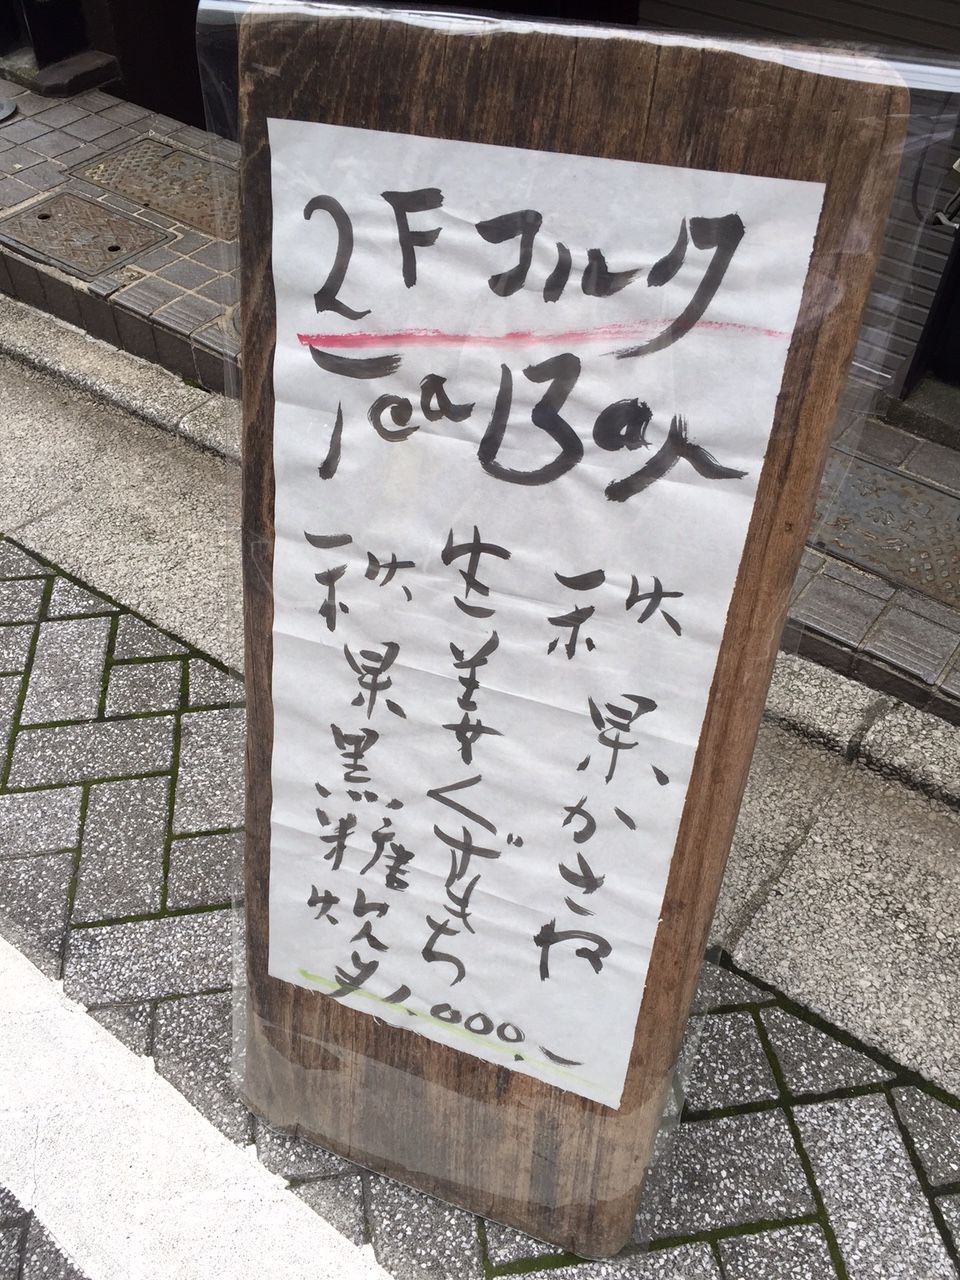 2F コルク
Tea Bar
秋果かさや
生姜くずもち
秋果黒糖炊
¥1,000.-